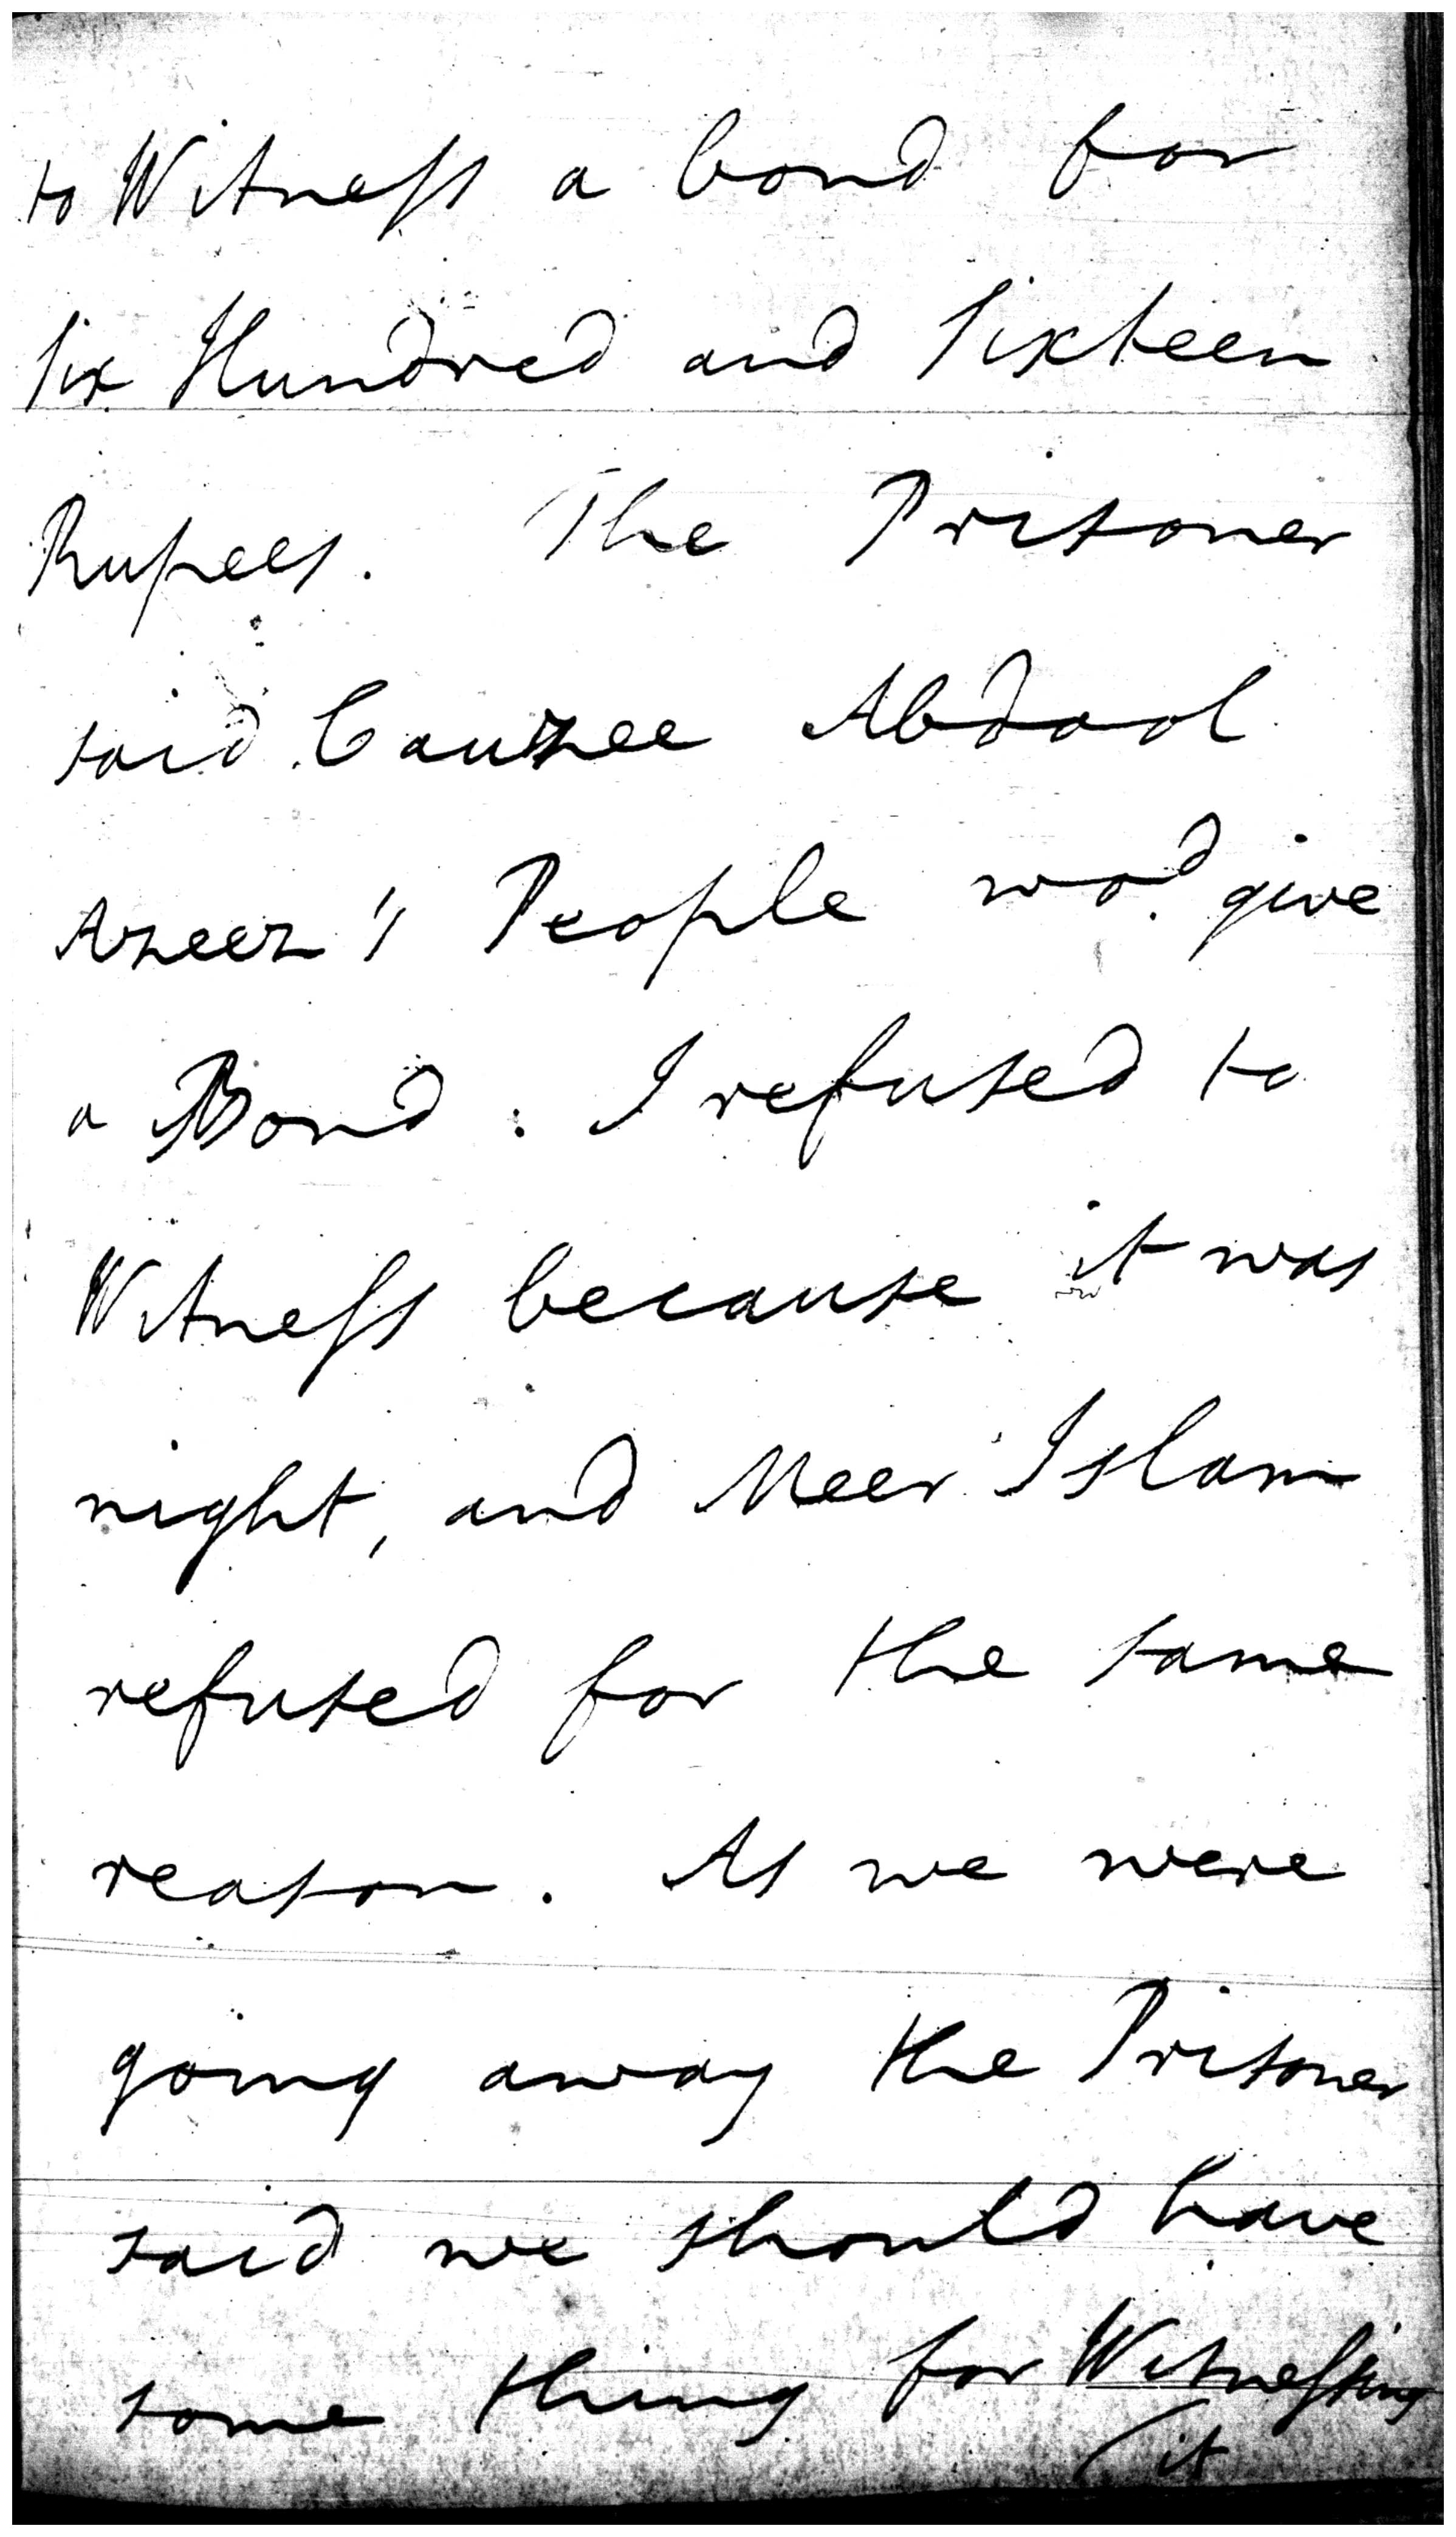 to Witness a bond for
Six Hundred and Sixteen
Rupees. The Prisoner
said Cauzee Abdool
Azeez's People wod. give
a Bond: I refused to
Witness because it was
night, and Meer Islam
refused for the same
reason. As we were
going away the Prisoner
said we should have
some thing for Witnessing
(it